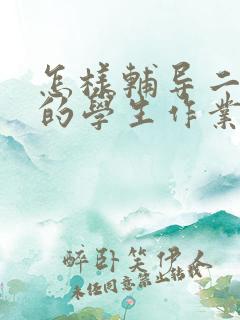 怎樣輔导二
的學生作業
醉卧笑伊人
未经同意禁止转载